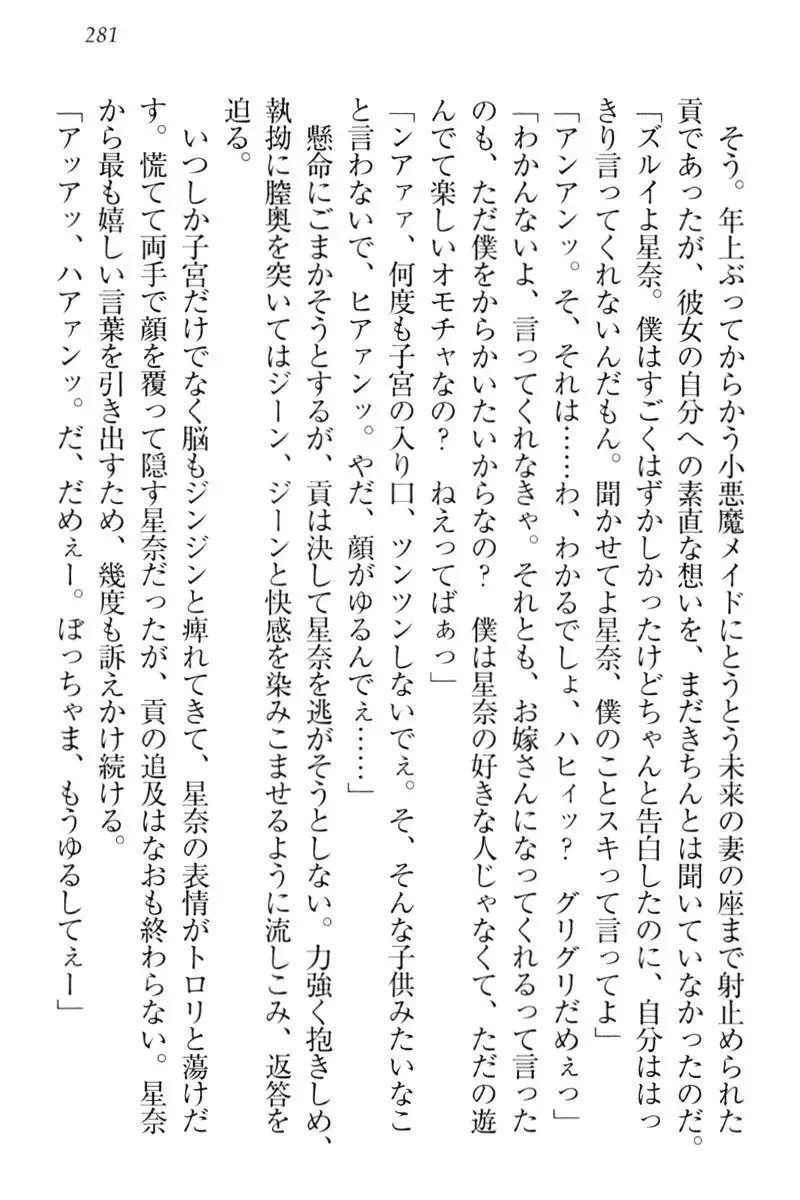 281
そう。年上ぶってからかう小悪魔メイドにとうとう未来の妻の座まで射止められた
貢であったが、彼女の自分への素直な想いを、まだきちんとは聞いていなかったのだ。
「ズルイよ星奈。僕はすごくはずかしかったけどちゃんと告白したのに、自分ははっ
きり言ってくれないんだもん。聞かせてよ星奈、僕のことスキって言ってよ」
「アンアンッ。そ、それは……わ、わかるでしょ、ハヒィッ?　グリグリだめぇっ」
「わかんないよ、言ってくれなきゃ。それとも、お嫁さんになってくれるって言った
のも、ただ僕をからかいたいからなの?　僕は星奈の好きな人じゃなくて、ただの遊
んでて楽しいオモチャなの?　ねえってばぁっ」
「ンアァァ、何度も子宮の入り口、ツンツンしないでぇ。そ、そんな子供みたいなこ
と言わないで、ヒアァンッ。やだ、顔がゆるんでぇ……」
懸命にごまかそうとするが、貢は決して星奈を逃がそうとしない。力強く抱きしめ、
執拗に膣奥を突いてはジーン、ジーンと快感を染みこませるように流しこみ、返答を
迫る。
いつしか子宮だけでなく脳もジンジンと痺れてきて、星奈の表情がトロリと蕩けだ
す。慌てて両手で顔を覆って隠す星奈だったが、貢の追及はなおも終わらない。星奈
から最も嬉しい言葉を引き出すため、幾度も訴えかけ続ける。
「アッアッ、ハアァンッ。だ、だめぇー。ぼっちゃま、もうゆるしてぇー」